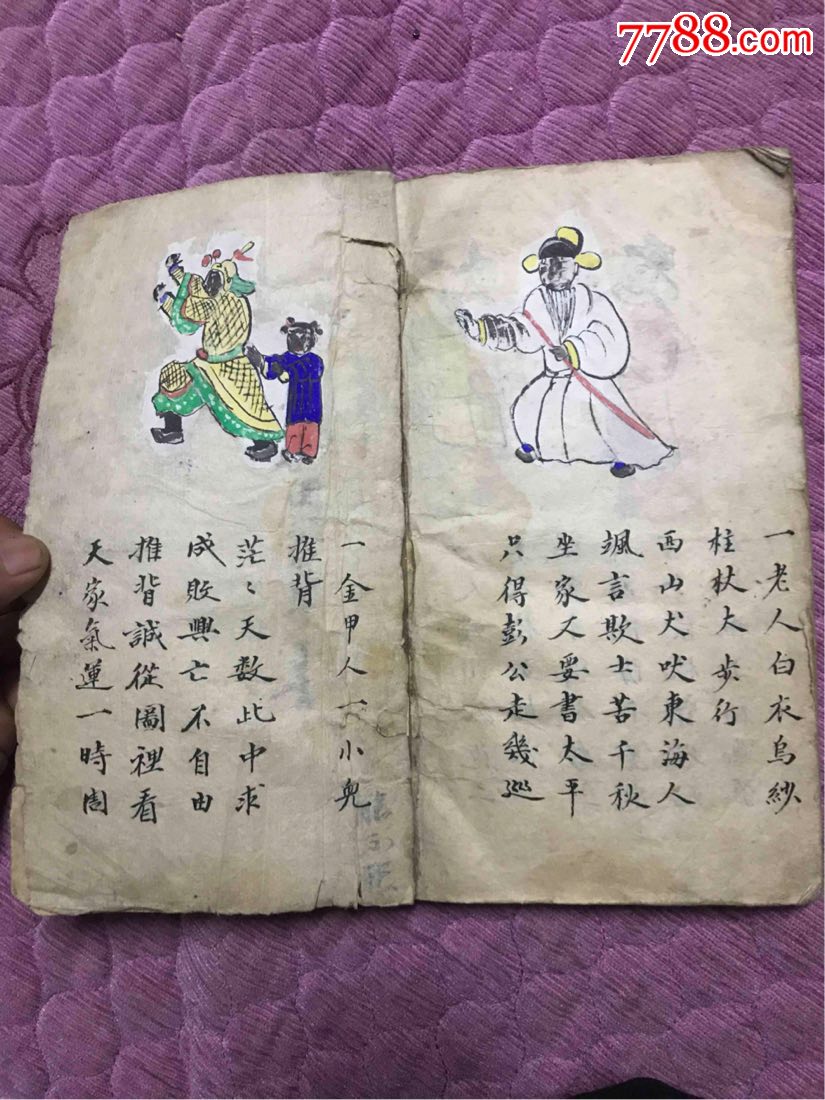 7788.com
一老人白衣烏紗
柱杖大步行
西山犬吠東海人
颯言欺士苦千秋
坐家又要書太平
只得彭公走幾巡
一金甲人一小兒
推背
茫〻天数此中求
成敗興亡不自由
推背誠從圖裡看
天家氣運一時周